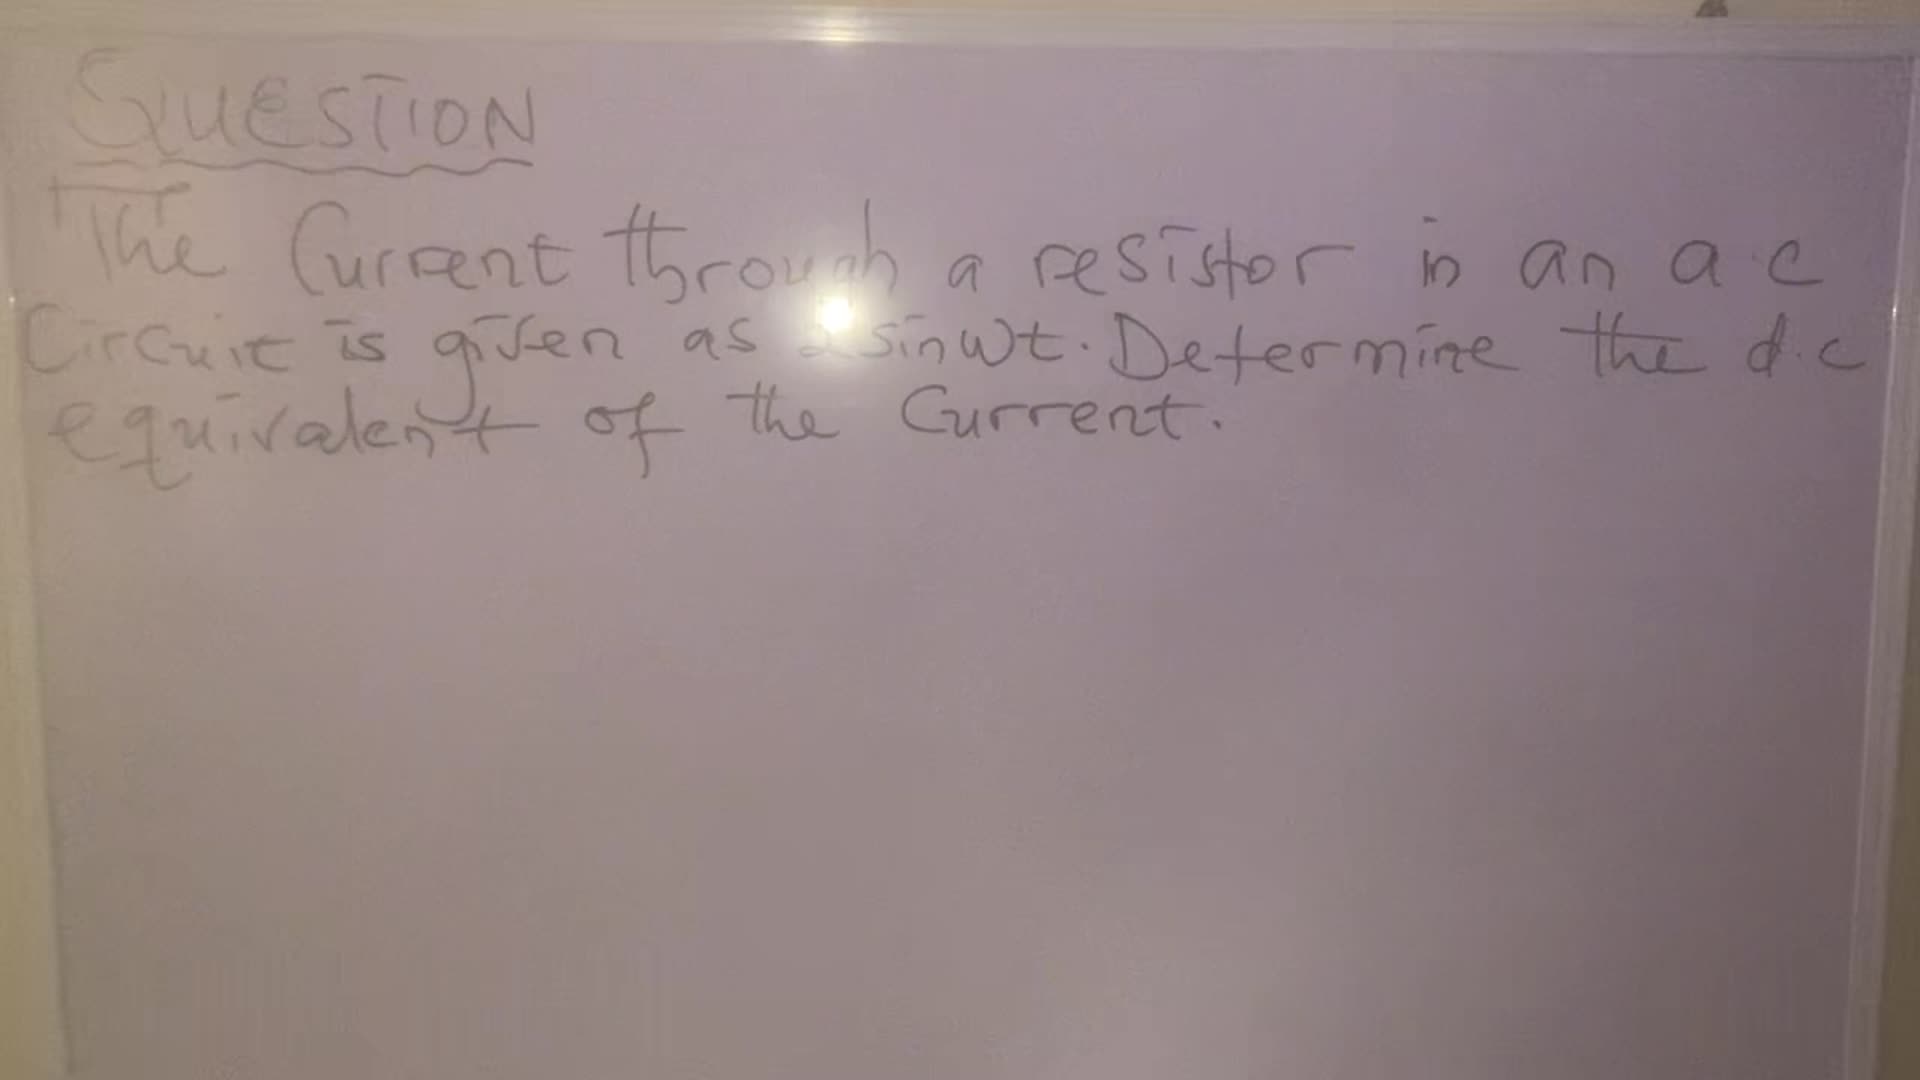 QUESTION
The Current through a resistor in an a.c
Circuit is given as 2 sinwt. Determine the d.c
equivalent of the Current.